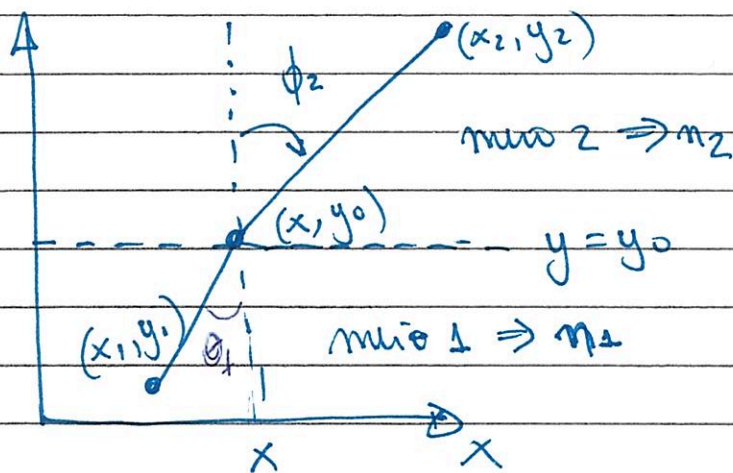 (x2, y2)
ϕ2
meio 2 ⇒ n2
(x, y0)
y = y0
(x1, y1)
θ1
meio 1 ⇒ n1
x
x